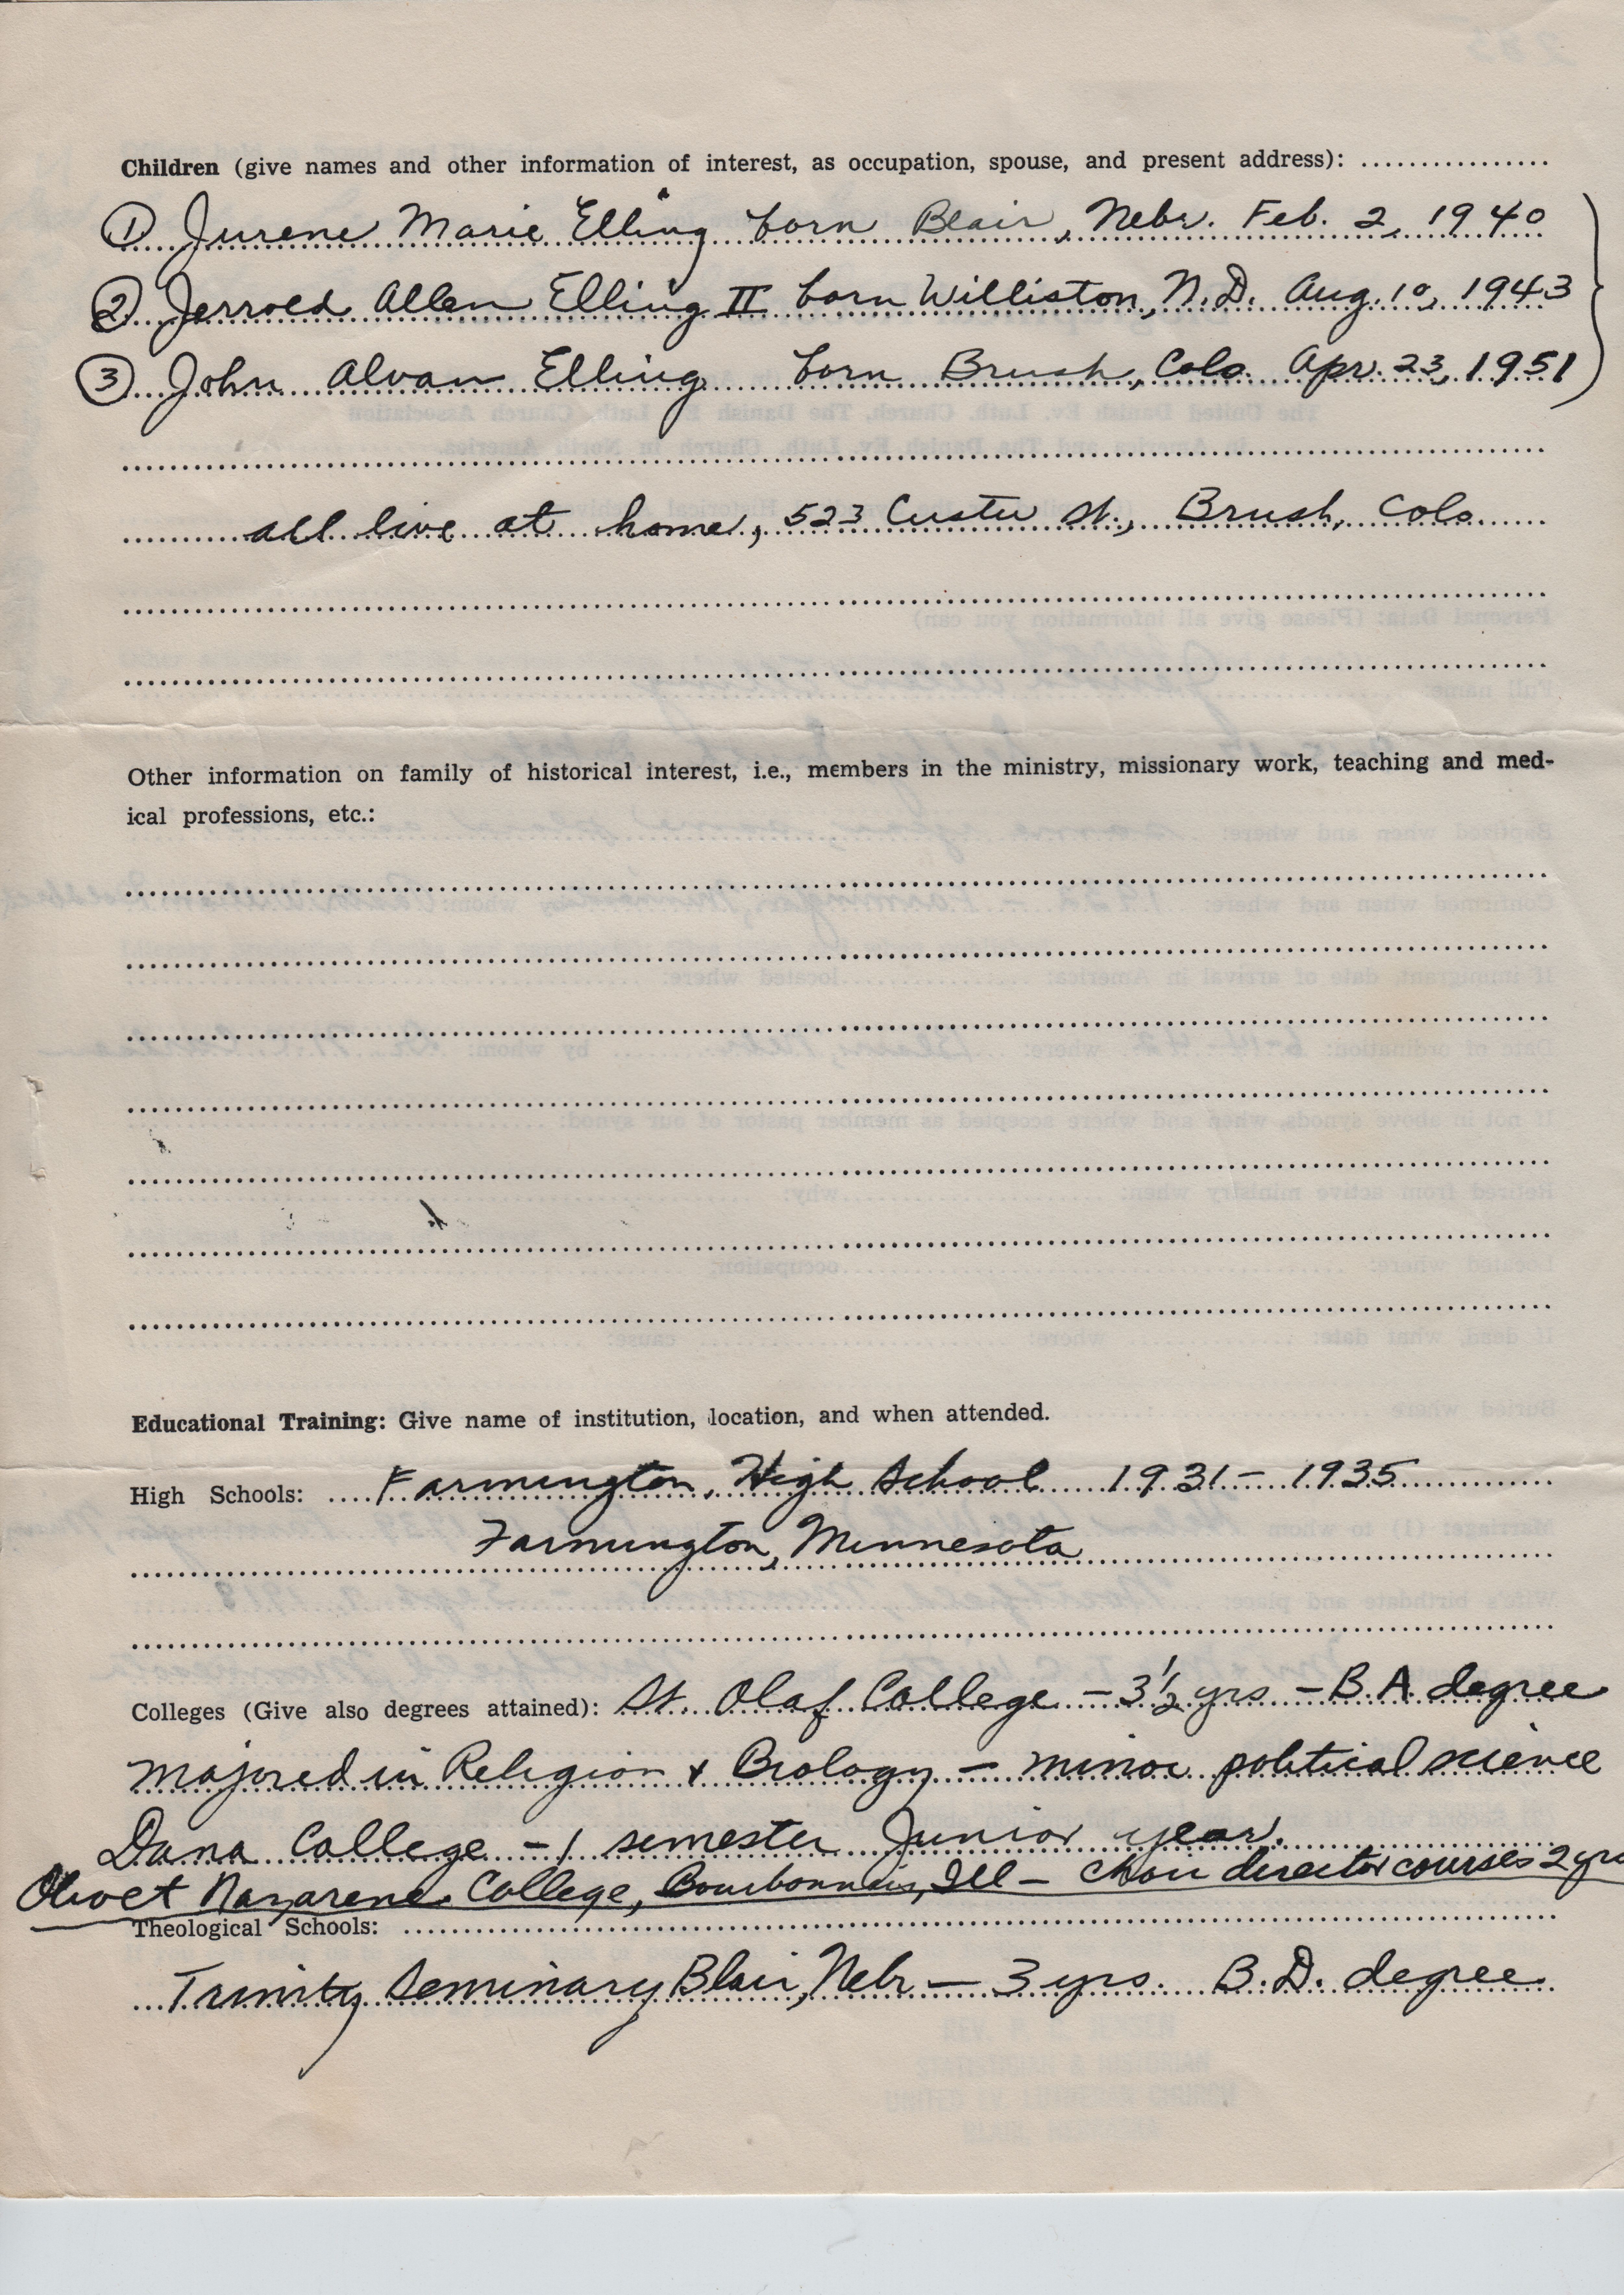 Children (give names and other information of interest, as occupation, spouse, and present address):
① Jurene Marie Elling born Blair, Nebr. Feb. 2, 1940
② Jerrold Allen Elling II born Williston, N.D. Aug. 10, 1943
③ John Alvan Elling born Brush, Colo. Apr. 23, 1951
all live at home, 523 Custer St., Brush, Colo.
Other information on family of historical interest, i.e., members in the ministry, missionary work, teaching and med-
ical professions, etc.:
Educational Training: Give name of institution, location, and when attended.
High Schools: Farmington, High School 1931 - 1935
Farmington, Minnesota
Colleges (Give also degrees attained): St. Olaf College - 3 1/2 yrs - B.A degree
majored in Religion & Biology - minor political science
Dana College - 1 semester Junior year.
Olivet Nazarene College, Bourbonnais, Ill - Choir director courses 2 yrs
Theological Schools:
Trinity Seminary Blair, Nebr - 3 yrs. B.D. degree